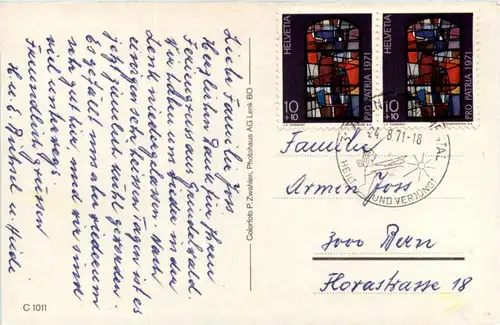 Liebe Familie Joss
Herzlichen Dank für Ihren
Feriengruss aus Grindelwald.
Wir haben in der
Lenk niedergelassen. Nach
einigen sehr heissen Tagen ist es
jetzt hier kühl geworden.
Es gefällt uns aber
sehr gut hier, und wir sind
viel unterwegs.
Freundlich grüssen
H. u. E. u. Heidi
C 1011
Colorfoto P. Zwahlen, Photohaus AG Lenk BO
HELVETIA
10
+10
PRO PATRIA 1971
HELVETIA
10
+10
PRO PATRIA 1971
24. 8. 71-18
HEILT UND VERJÜNGT
Familie
Armin Joss
3000 Bern
Florastrasse 18